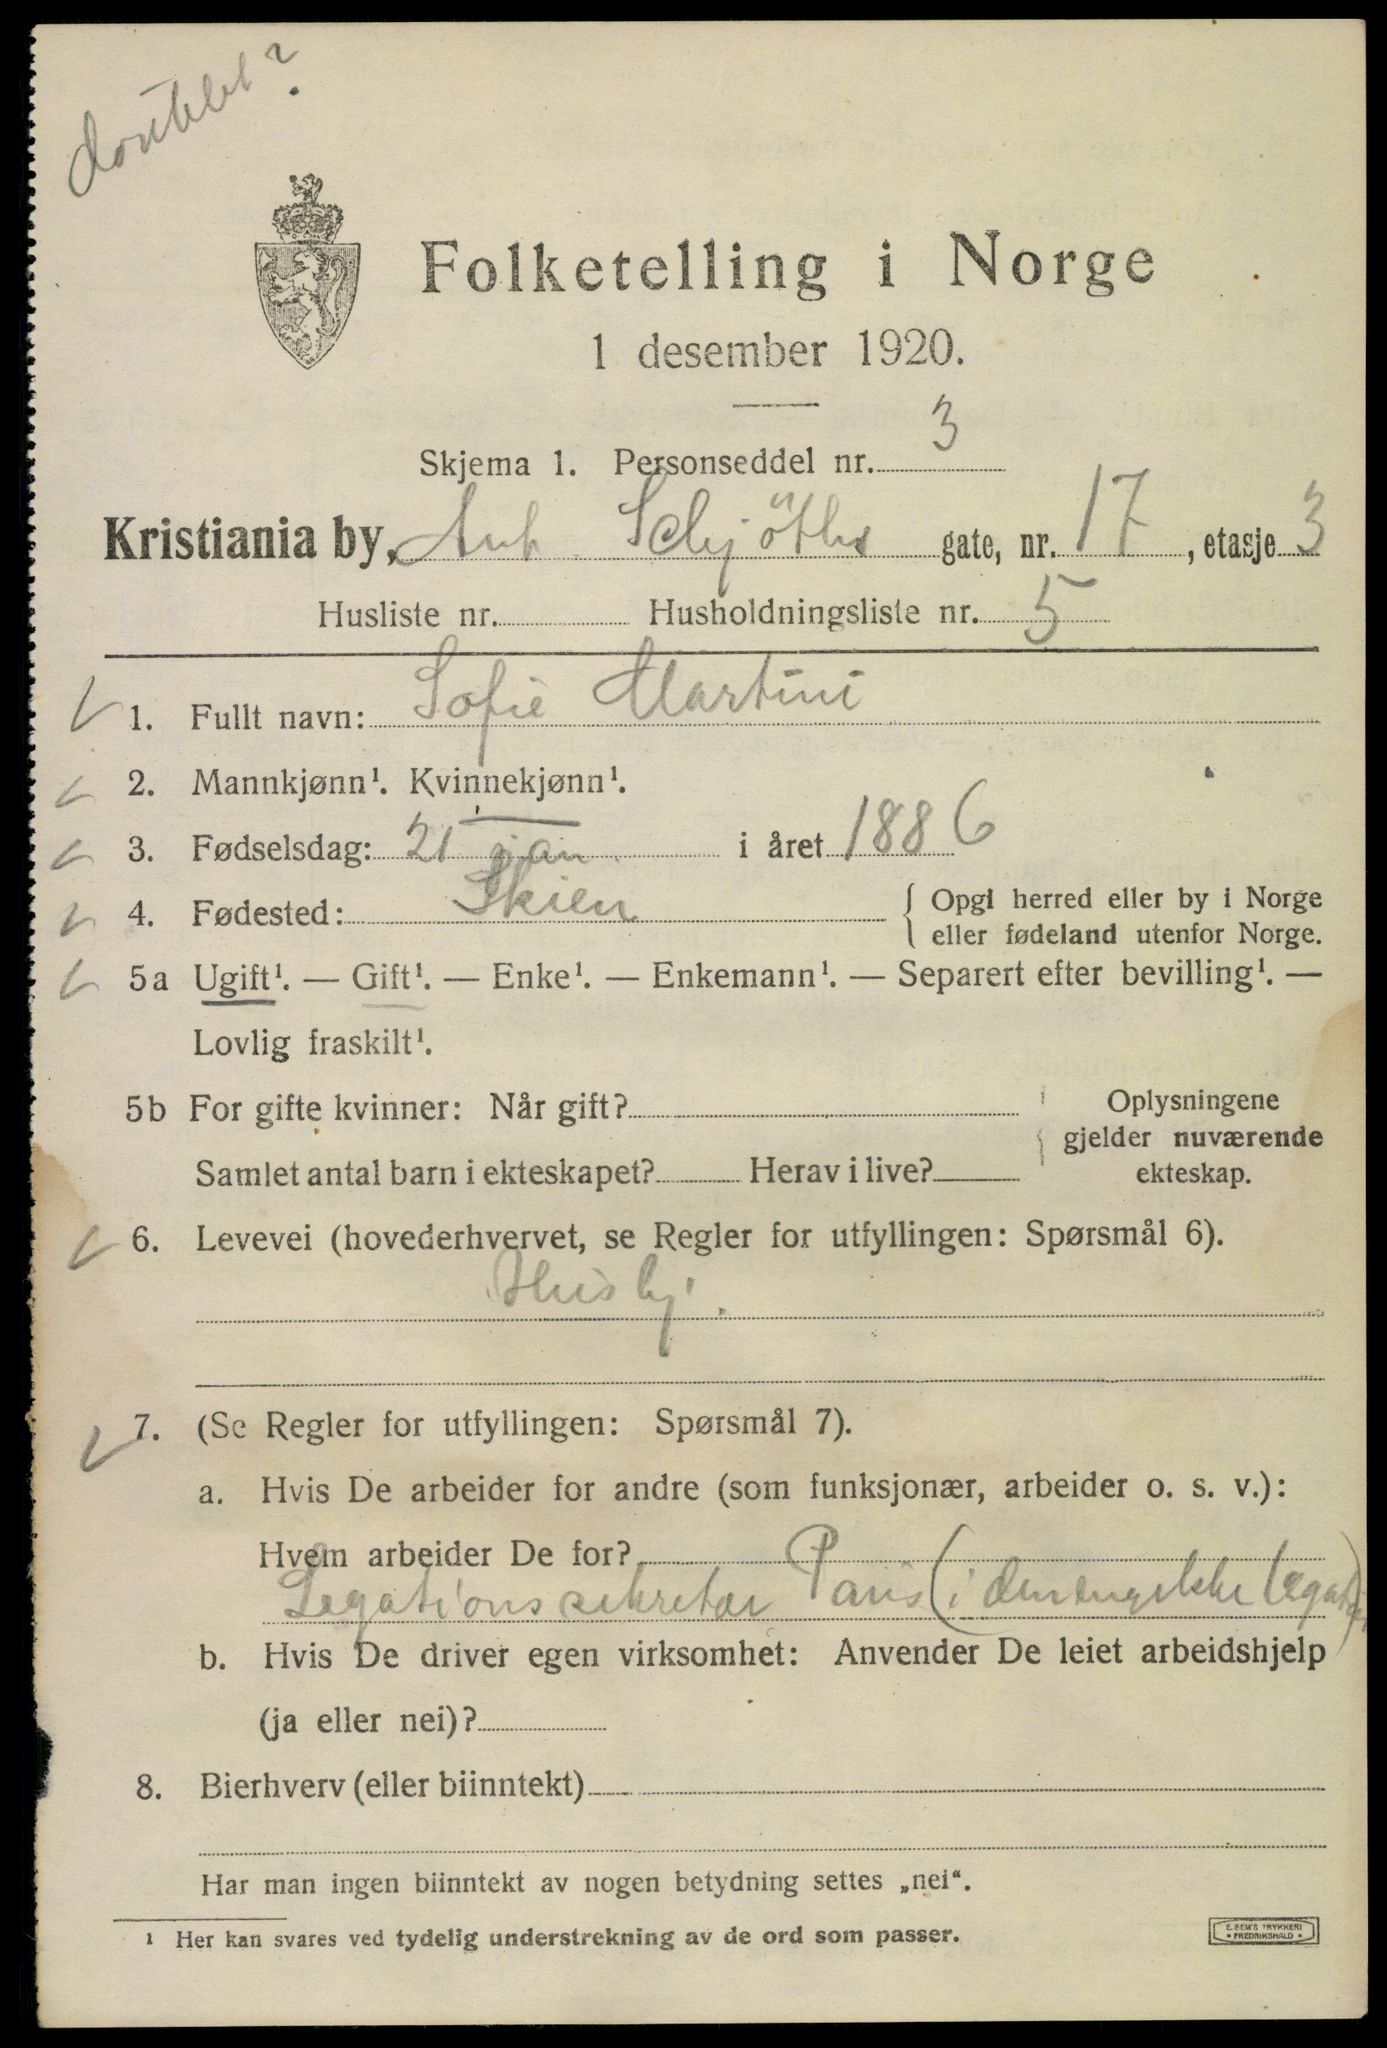 doublet?
Folketelling i Norge
1 desember 1920.
Skjema 1. Personseddel nr. 3
Kristiania by, Ant. Schjöths gate, nr. 17, etasje 3
Husliste nr. Husholdningsliste nr. 5
1. Fullt navn: Sofie Martini
2. Mannkjønn¹. Kvinnekjønn¹.
3. Fødselsdag: 21 jan i året 1886
4. Fødested: Skien { Opgi herred eller by i Norge
eller fødeland utenfor Norge.
5a Ugift¹. — Gift¹. — Enke¹. — Enkemann¹. — Separert efter bevilling¹. —
Lovlig fraskilt¹.
5b For gifte kvinner: Når gift? Oplysningene
gjelder nuværende
Samlet antal barn i ekteskapet? Herav i live? ekteskap.
6. Levevei (hovederhvervet, se Regler for utfyllingen: Spørsmål 6).
Husbj.
7. (Se Regler for utfyllingen: Spørsmål 7).
a. Hvis De arbeider for andre (som funksjonær, arbeider o. s. v.):
Hvem arbeider De for?
Legationssekretær Paus (i den engelske legation)
b. Hvis De driver egen virksomhet: Anvender De leiet arbeidshjelp
(ja eller nei)?
8. Bierhverv (eller biinntekt)
Har man ingen biinntekt av nogen betydning settes „nei“.
¹ Her kan svares ved tydelig understrekning av de ord som passer.
E. SEM'S TRYKKERI
• FREDRIKSHALD •